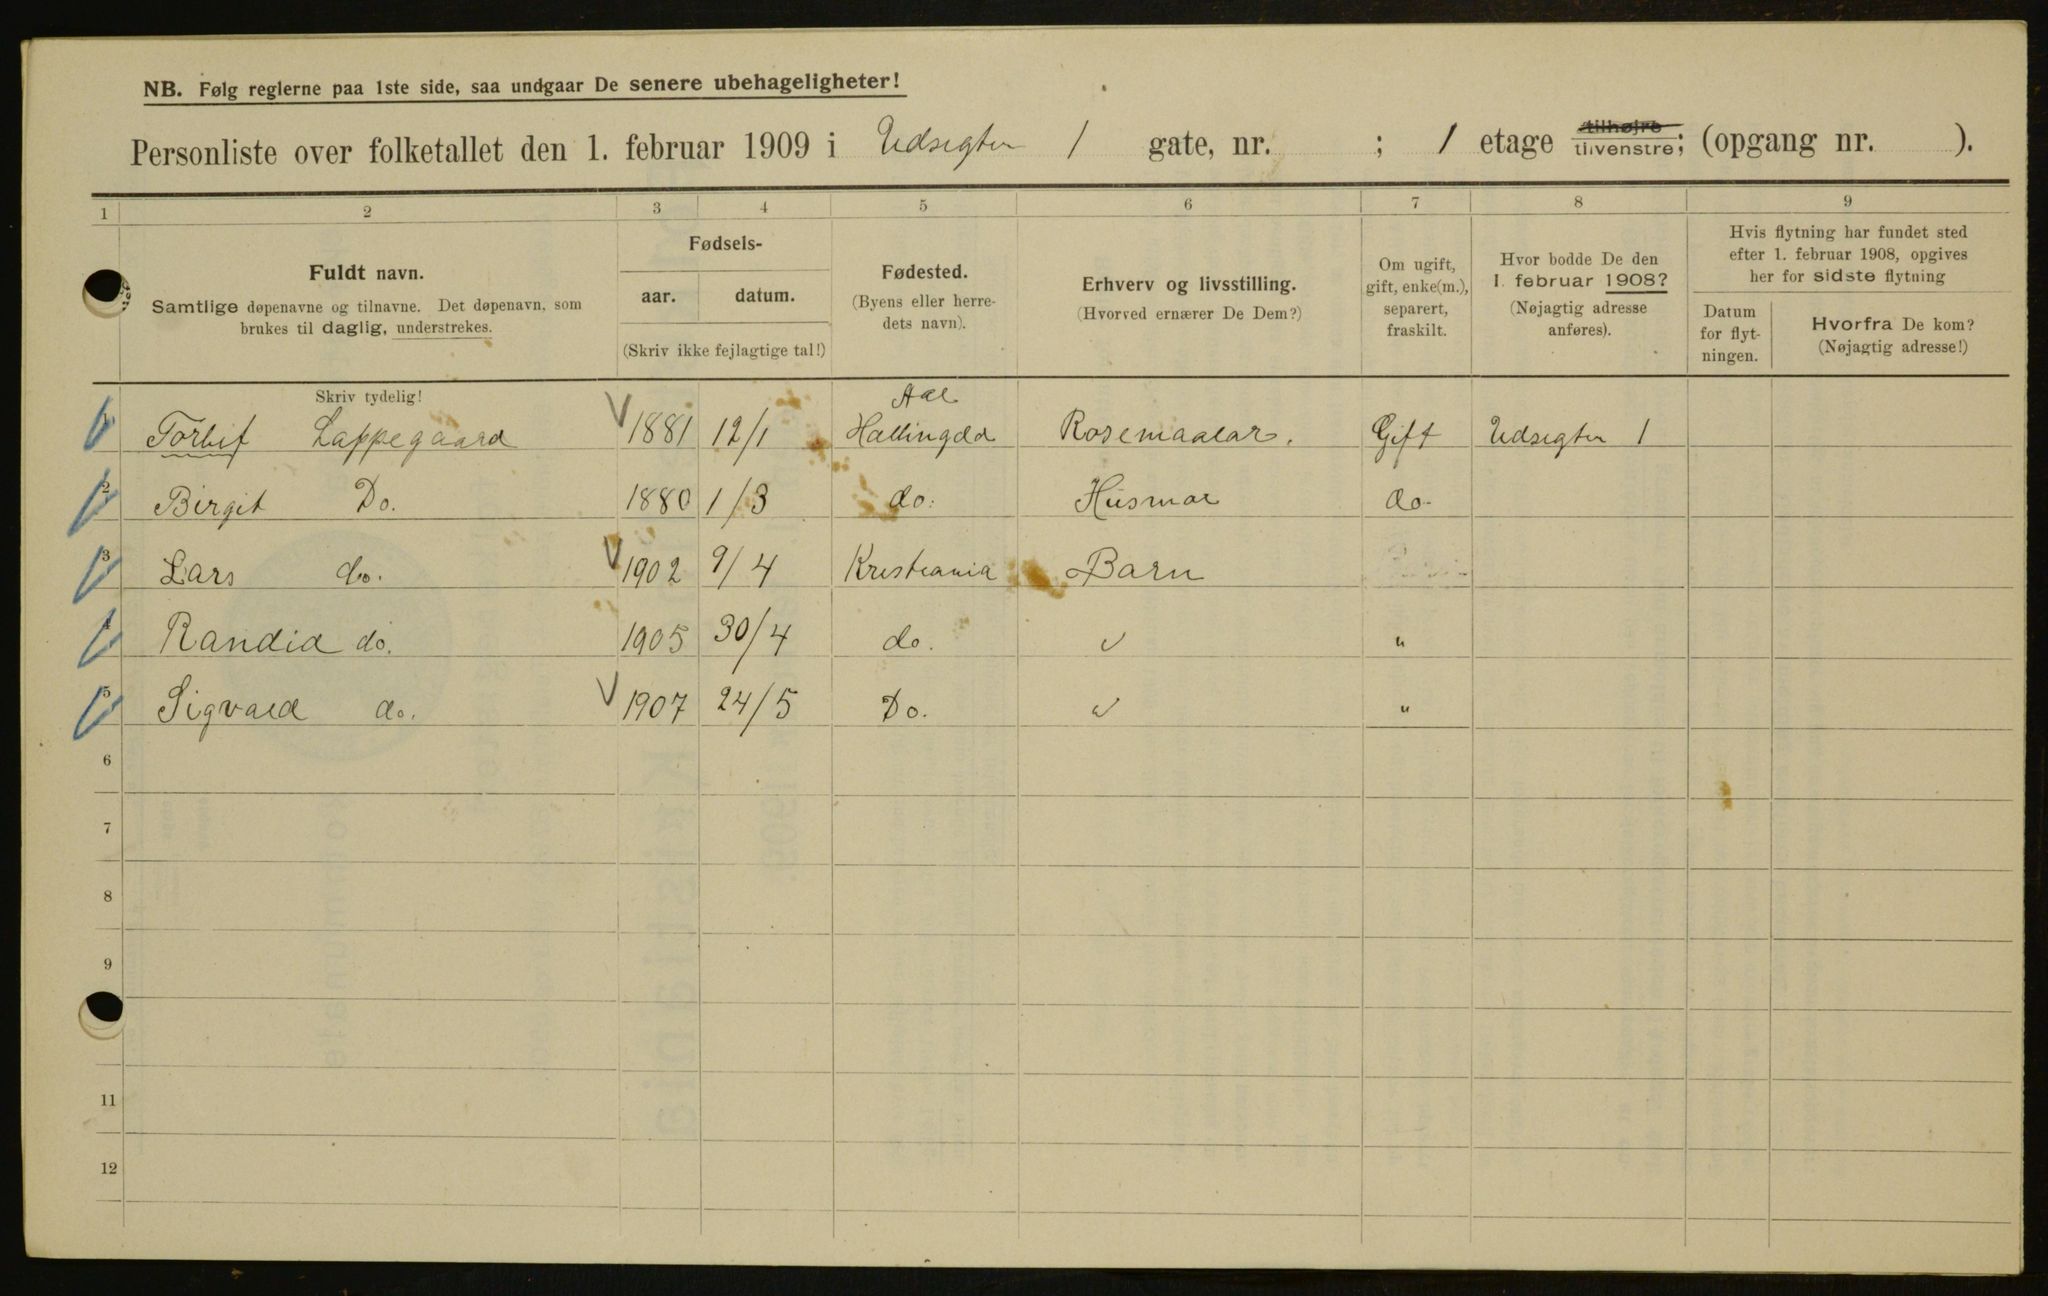 NB. Følg reglerne paa 1ste side, saa undgaar De senere ubehageligheter!
Personliste over folketallet den 1. februar 1909 i Udsigten 1 gate, nr. ; 1 etage tilhøjre tilvenstre; (opgang nr. ).
1 2 3 4 5 6 7 8 9
Fuldt navn.
Samtlige døpenavne og tilnavne. Det døpenavn, som
brukes til daglig, understrekes.
Fødsels-
aar. datum.
(Skriv ikke fejlagtige tal!)
Fødested.
(Byens eller herre-
dets navn).
Erhverv og livsstilling.
(Hvorved ernærer De Dem?)
Om ugift,
gift, enke(m.),
separert,
fraskilt.
Hvor bodde De den
1. februar 1908?
(Nøjagtig adresse
anføres).
Hvis flytning har fundet sted
efter 1. februar 1908, opgives
her for sidste flytning
Datum
for flyt-
ningen.
Hvorfra De kom?
(Nøjagtig adresse!)
Skriv tydelig!
Aal
1 Torbif Lappegaard 1881 12/1 Hallingdal Rosemaalar. Gift Udsigten 1
2 Birgit Do. 1880 1/3 do: Husmor do.
3 Lars do. 1902 9/4 Kristiania Barn
4 Randid do. 1905 30/4 do. " "
5 Sigvald do. 1907 24/5 Do. " "
6
7
8
9
11
12